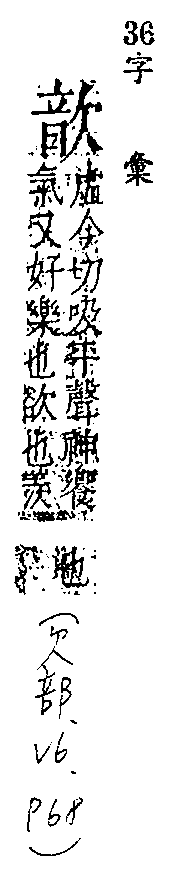 36
字彙
歆
虛金切吸平聲神饗
氣又好樂也欲也羨
也
(欠部、V6、P68)